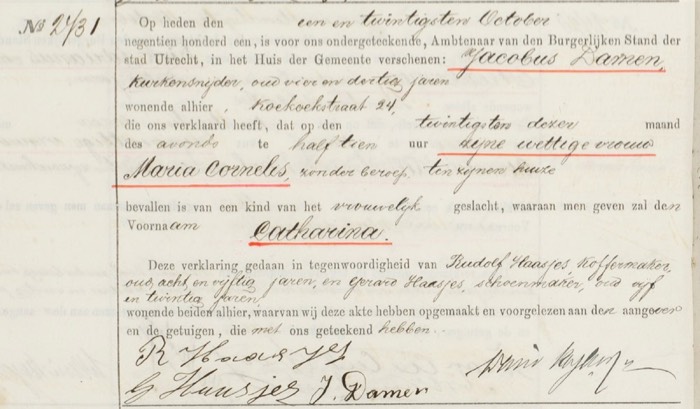 No 2731
Op heden den een en twintigsten October
negentien honderd een, is voor ons ondergeteekende, Ambtenaar van den Burgerlijken Stand der
stad Utrecht, in het Huis der Gemeente verschenen: Jacobus Damen,
kurkensnijder, oud vier en dertig jaren
wonende alhier, Koekoekstraat 24,
die ons verklaard heeft, dat op den twintigsten dezer maand
des avonds te half tien uur zijne wettige vrouw
Maria Cornelis, zonder beroep, ten zijnen huize
bevallen is van een kind van het vrouwelijk geslacht, waaraan men geven zal den
Voornaam Catharina.
Deze verklaring, gedaan in tegenwoordigheid van Rudolf Haasjes, koffermaker,
oud acht en vijftig jaren, en Gerard Haasjes, schoenmaker, oud vijf
en twintig jaren,
wonende beiden alhier, waarvan wij deze akte hebben opgemaakt en voorgelezen aan den aangever
en de getuigen, die met ons geteekend hebben.
R Haasjes
G Haasjes J. Damen